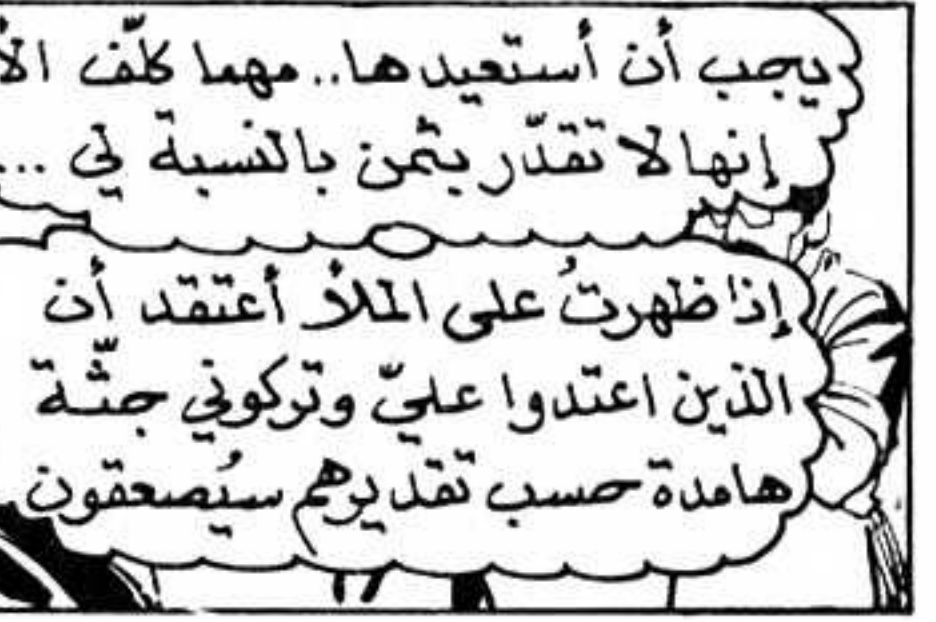 يجب أن أستعيدها.. مهما كلّف
إنها لا تقدّر بثمن بالنسبة لي ...
إذا ظهرتُ على الملأ أعتقد أن
الذين اعتدوا عليّ وتركوني جثّة
هامدة حسب تقديرهم سيُصعقون